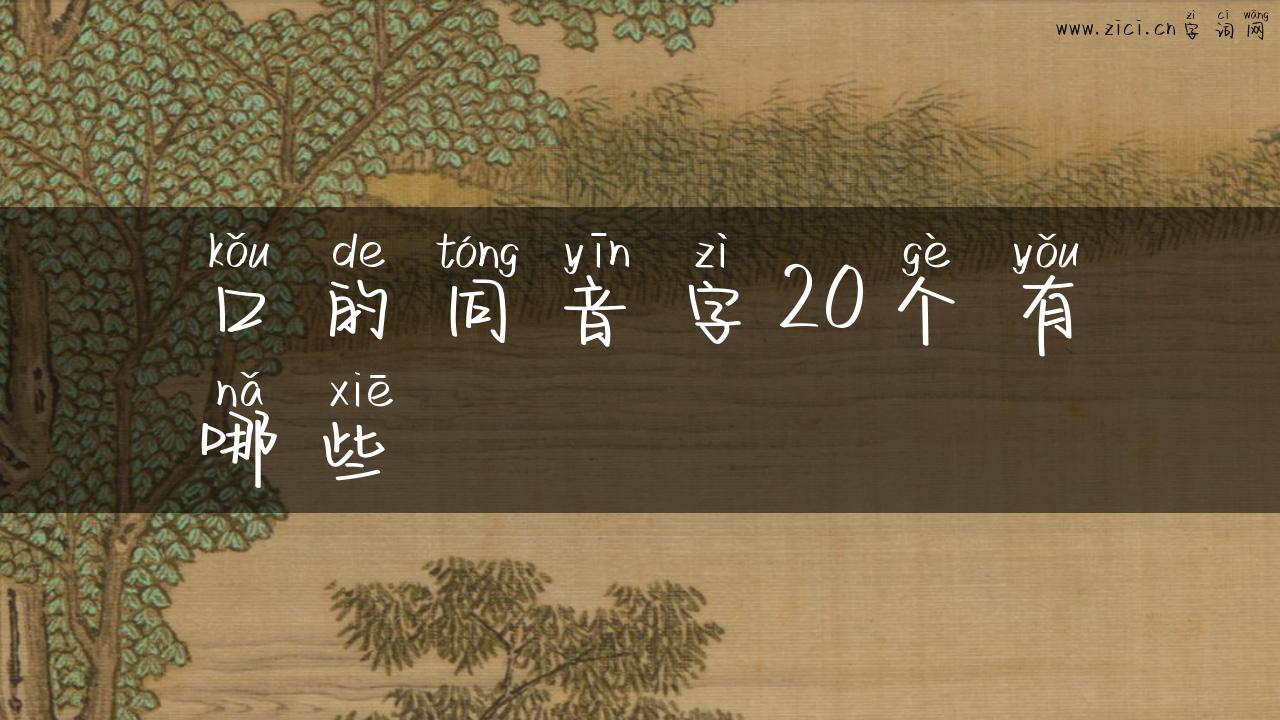 zì cí wǎng
www.zici.cn字词网
kǒu de tóng yīn zì gè yǒu
口的同音字20个有
nǎ xiē
哪些